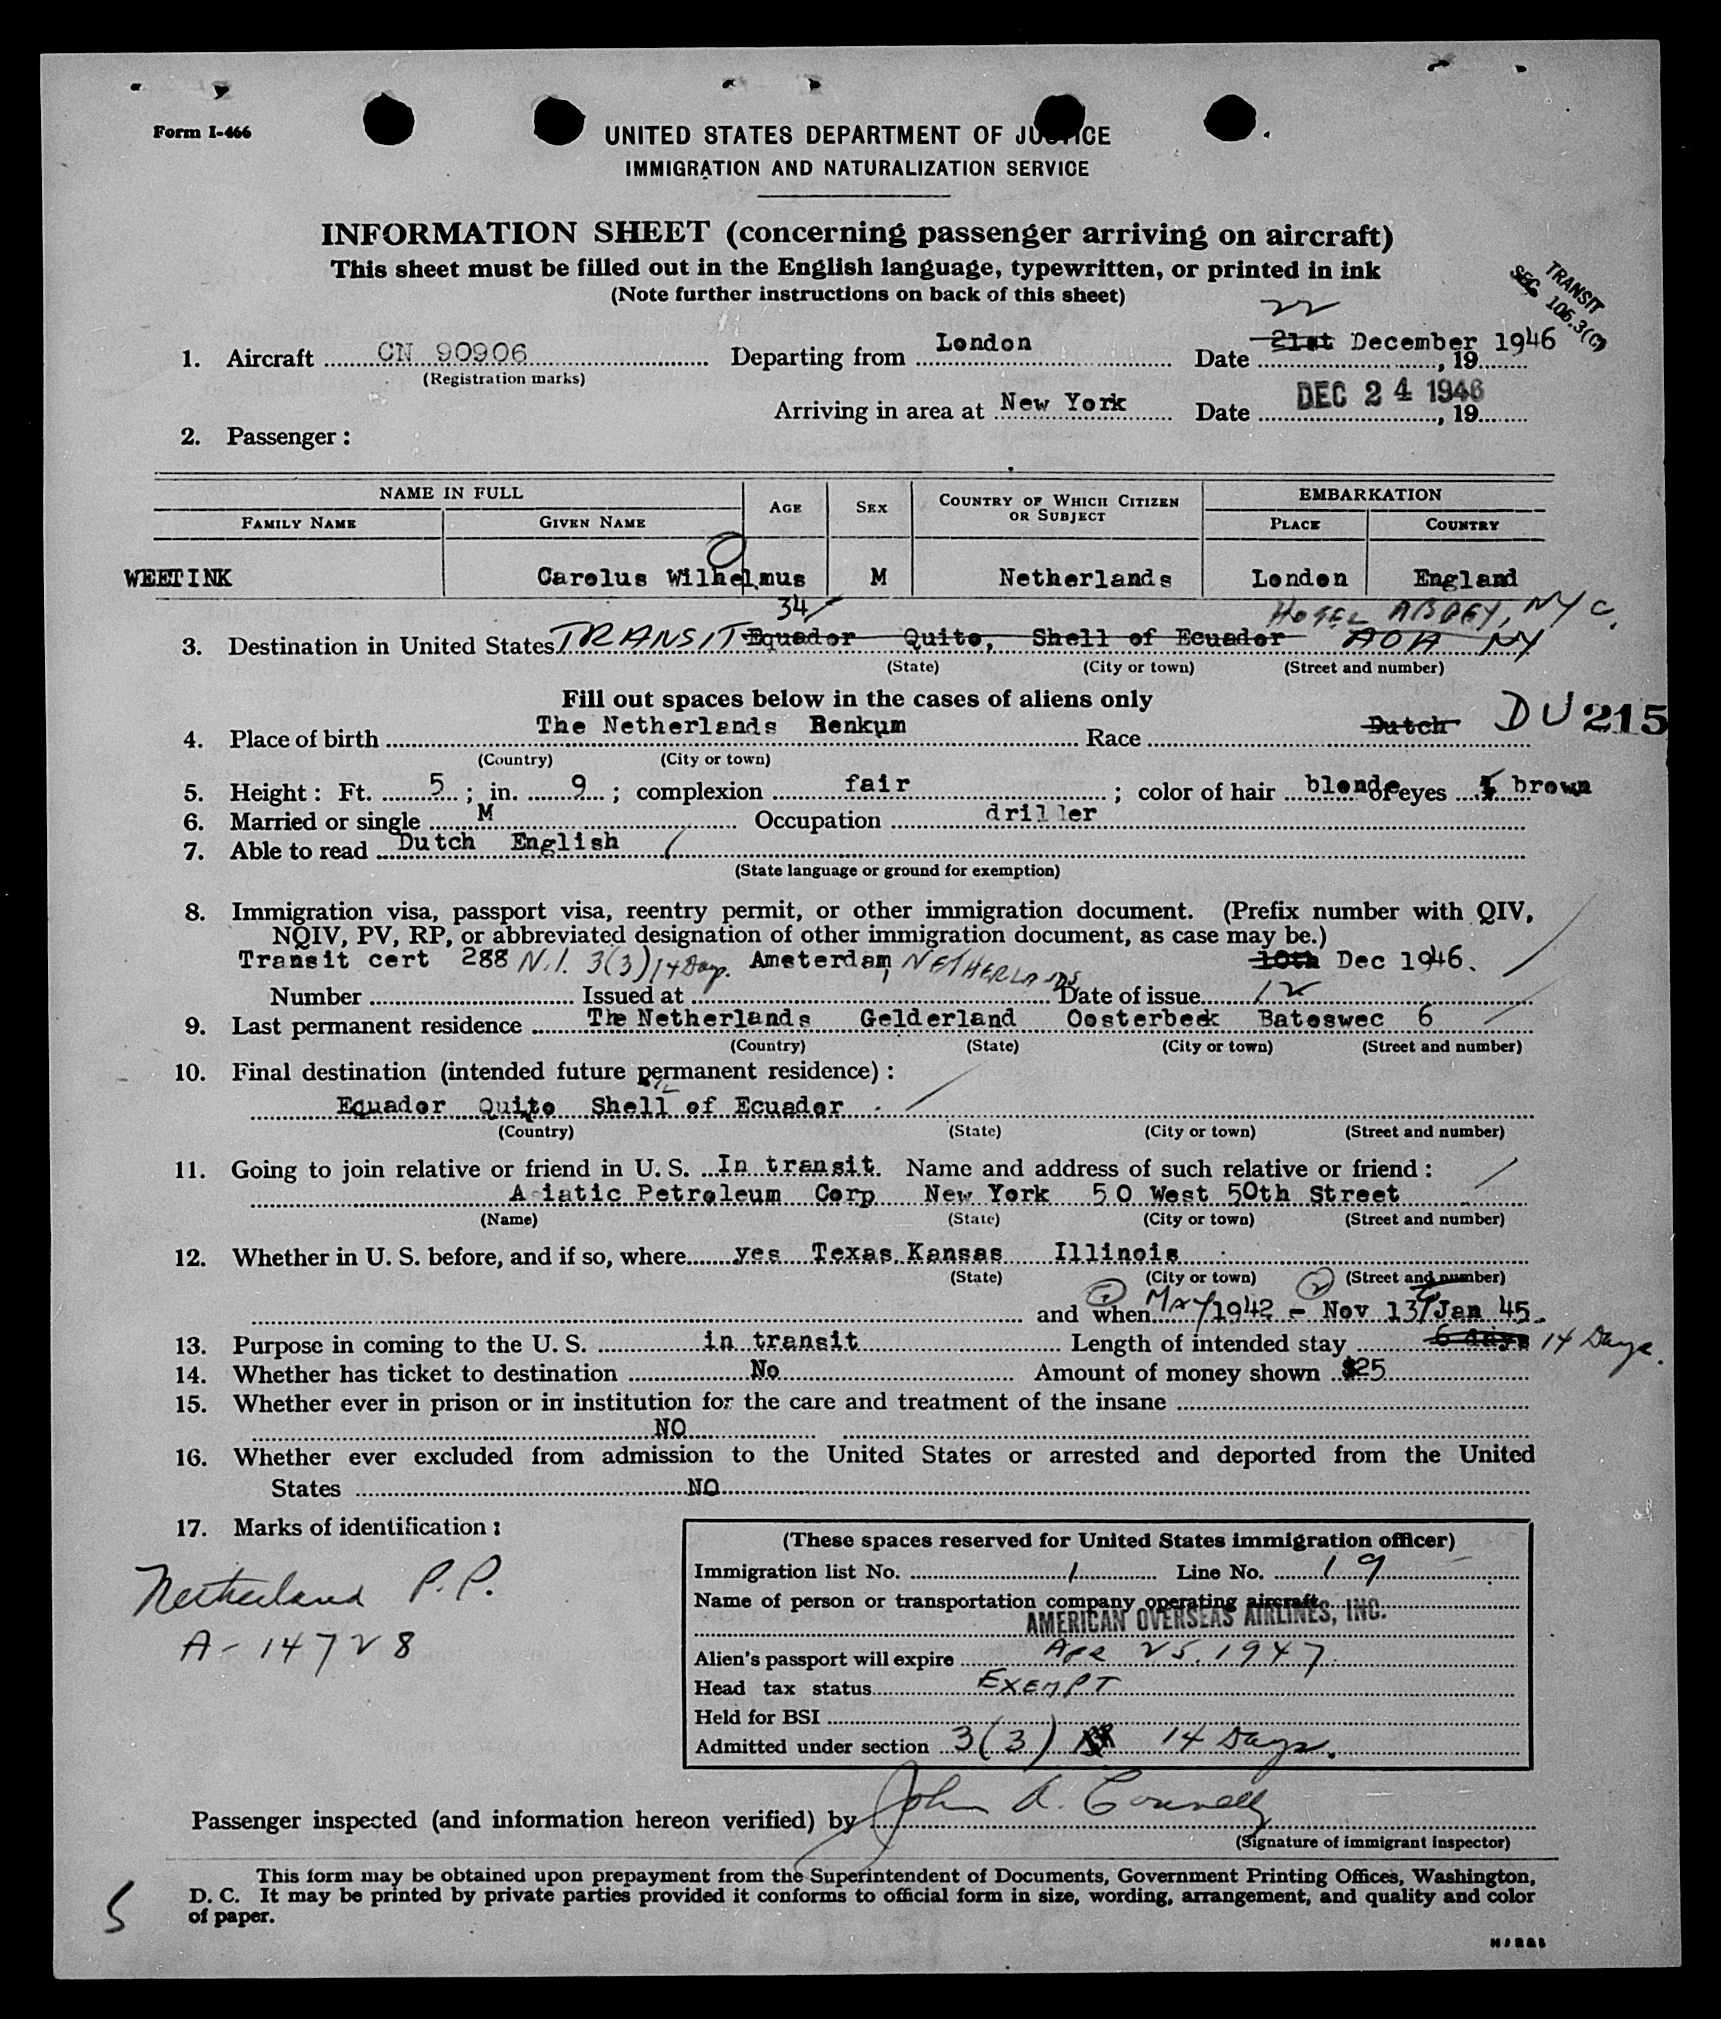 Form I-466
UNITED STATES DEPARTMENT OF JUSTICE
IMMIGRATION AND NATURALIZATION SERVICE
INFORMATION SHEET (concerning passenger arriving on aircraft)
This sheet must be filled out in the English language, typewritten, or printed in ink
(Note further instructions on back of this sheet)
TRANSIT
SEC 105.3(C)
22
1. Aircraft CN 90906 Departing from London Date 21st December 1946, 19
(Registration marks)
Arriving in area at New York Date DEC 24 1946, 19
2. Passenger:
NAME IN FULL AGE SEX COUNTRY OF WHICH CITIZEN OR SUBJECT EMBARKATION
FAMILY NAME GIVEN NAME PLACE COUNTRY
WEETINK Carolus Wilhelmus M Netherlands London England
34 HOTEL ABBEY, NYC.
3. Destination in United States TRANSIT Equador Quito, Shell of Ecuador AOA NY
(State) (City or town) (Street and number)
Fill out spaces below in the cases of aliens only
4. Place of birth The Netherlands Renkum Race Dutch DU 215
(Country) (City or town)
5. Height: Ft. 5; in. 9; complexion fair; color of hair blonde of eyes brown
6. Married or single M Occupation driller
7. Able to read Dutch English
(State language or ground for exemption)
8. Immigration visa, passport visa, reentry permit, or other immigration document. (Prefix number with QIV,
NQIV, PV, RP, or abbreviated designation of other immigration document, as case may be.)
Transit cert 288 N.I. 3(3) 14 Days. Amsterdam NETHERLANDS 10th Dec 1946.
Number Issued at Date of issue 12
9. Last permanent residence The Netherlands Gelderland Oosterbeek Batoswec 6
(Country) (State) (City or town) (Street and number)
10. Final destination (intended future permanent residence):
Equador Quito Shell of Ecuador
(Country) (State) (City or town) (Street and number)
11. Going to join relative or friend in U. S. In transit. Name and address of such relative or friend:
Asiatic Petroleum Corp New York 50 West 50th Street
(Name) (State) (City or town) (Street and number)
12. Whether in U. S. before, and if so, where yes Texas, Kansas Illinois
(State) (City or town) (Street and number)
and when May 1942 - Nov 13 Jan 45.
13. Purpose in coming to the U. S. in transit Length of intended stay 6 days 14 Days.
14. Whether has ticket to destination No Amount of money shown $25
15. Whether ever in prison or in institution for the care and treatment of the insane
NO
16. Whether ever excluded from admission to the United States or arrested and deported from the United
States NO
17. Marks of identification:
Netherland P.P.
A-14728
(These spaces reserved for United States immigration officer)
Immigration list No. 1 Line No. 19
Name of person or transportation company operating aircraft
AMERICAN OVERSEAS AIRLINES, INC.
Alien's passport will expire Apr 25, 1947
Head tax status EXEMPT
Held for BSI
Admitted under section 3(3) 14 Days.
Passenger inspected (and information hereon verified) by John A. Connelly
(Signature of immigrant inspector)
This form may be obtained upon prepayment from the Superintendent of Documents, Government Printing Offices, Washington,
D. C. It may be printed by private parties provided it conforms to official form in size, wording, arrangement, and quality and color
of paper.
5